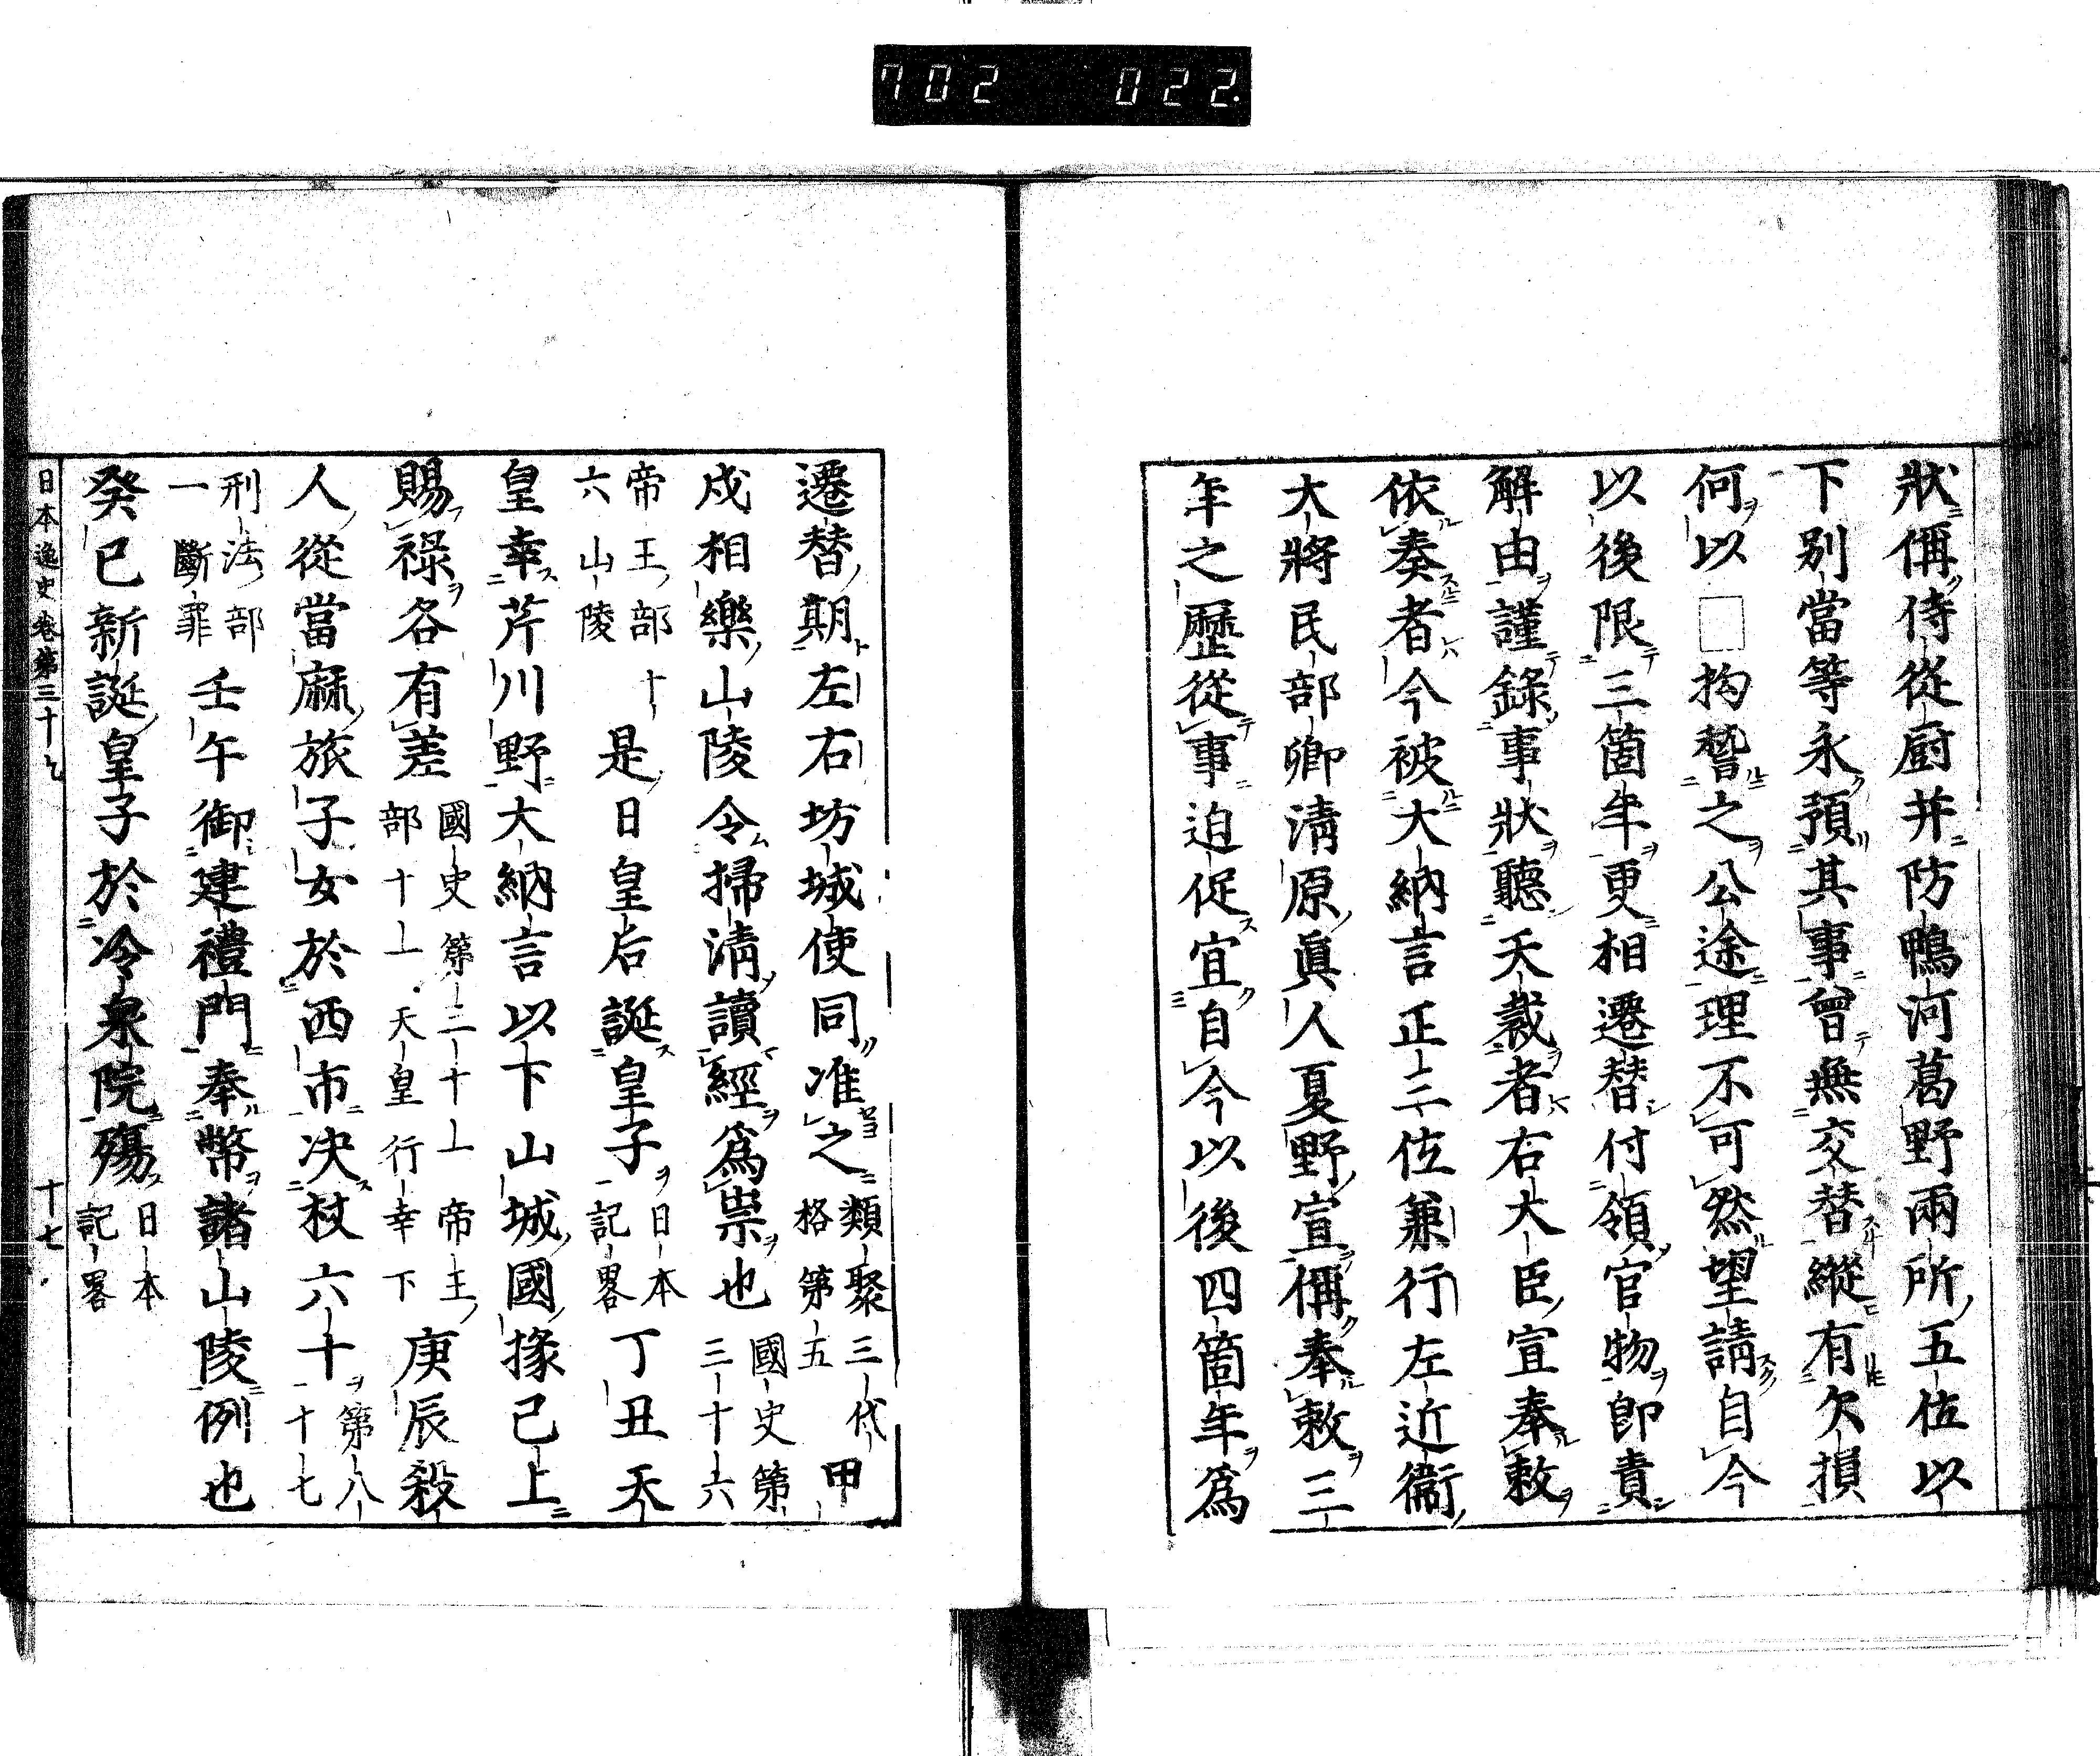 702 022
狀偁侍從厨并防鴨河葛野兩所五位以
下別當等永預其事曾無交替縱有欠損
何以□拘誓之公途理不可然望請自今
以後限三箇年更相遷替付領官物即責
解由謹錄事狀聽天裁者右大臣宣奉敕
依奏者今被大納言正三位兼行左近衞
大將民部卿淸原眞人夏野宣偁奉敕三
年之歷從事迫促宜自今以後四箇年爲
遷替期左右坊城使同准之類聚三代格第五甲
戍相樂山陵令掃淸讀經爲祟也國史第三十六
帝王部十六山陵是日皇后誕皇子日本記畧丁丑天
皇幸芹川野大納言以下山城國掾已上
賜祿各有差國史第二十二帝王部十二天皇行幸下庚辰殺
人從當麻旅子女於西市决杖六十第八十七
刑法部一斷罪壬午御建禮門奉幣諸山陵例也
癸已新誕皇子於冷泉院殤日本記畧
日本逸史卷第三十七 十七